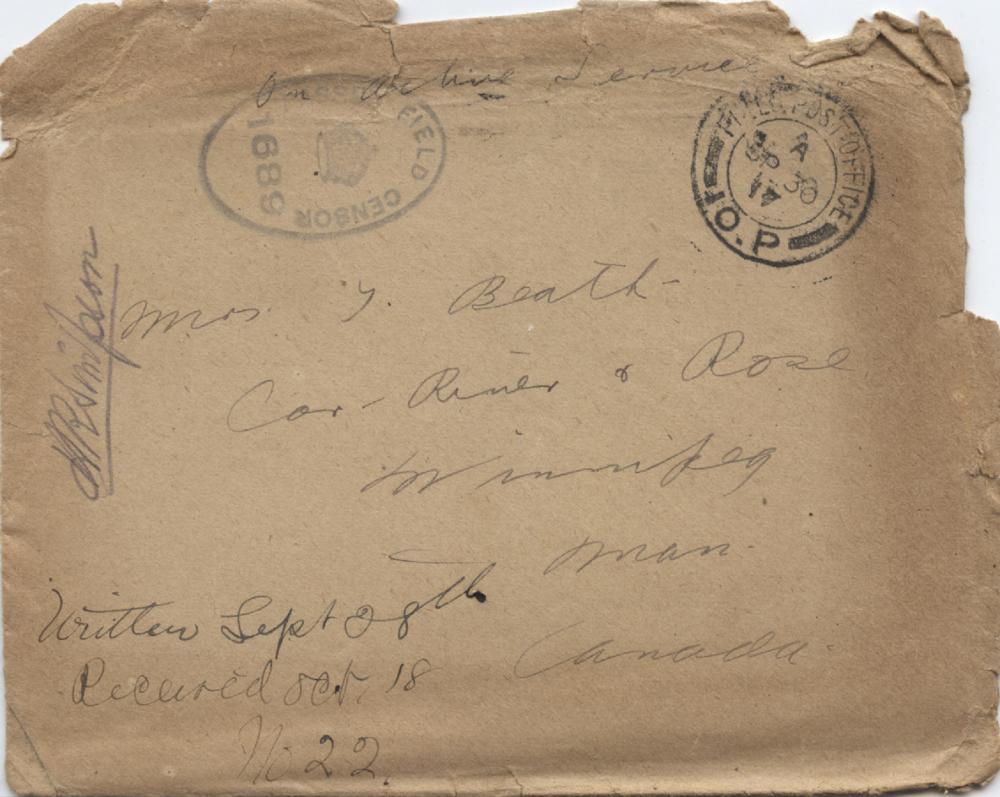 On Active Service
PASSED FIELD CENSOR
1689
FIELD POST OFFICE
A
30
17
D.P
Mrs. J. Beath
Cor- River & Rose
Winnipeg
Man.
Canada.
Written Sept 28th
Received Oct. 18
No 22.